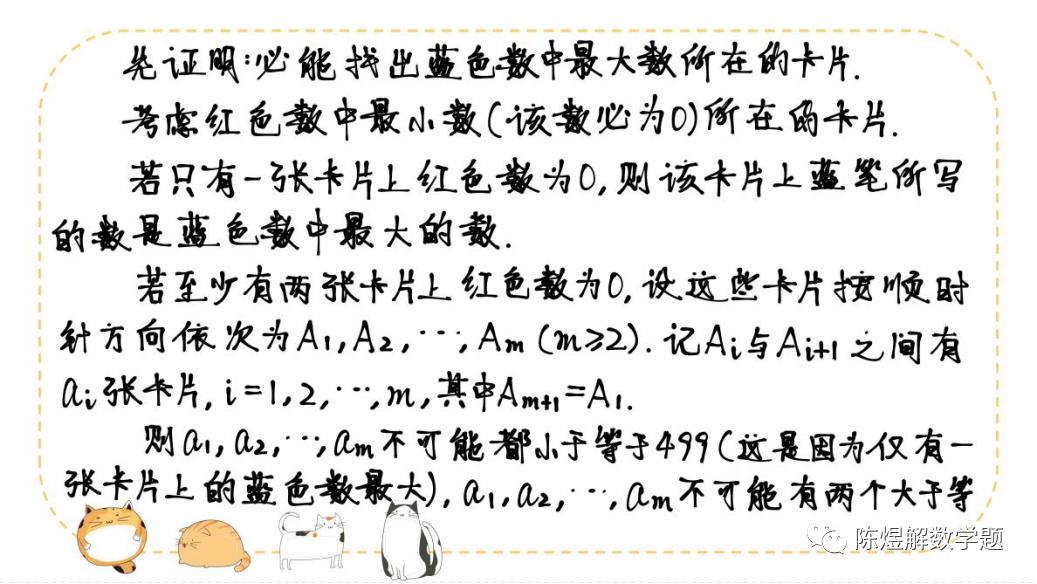 先证明:必能找出蓝色数中最大数所在的卡片.
考虑红色数中最小数(该数必为0)所在的卡片.
若只有一张卡片上红色数为0,则该卡片上蓝笔所写
的数是蓝色数中最大的数.
若至少有两张卡片上红色数为0,设这些卡片按顺时
针方向依次为A₁,A₂,…,Aₘ(m≥2).记Aᵢ与Aᵢ₊₁之间有
aᵢ张卡片,i=1,2,…,m,其中Aₘ₊₁=A₁.
则a₁,a₂,…,aₘ不可能都小于等于499(这是因为仅有一
张卡片上的蓝色数最大),a₁,a₂,…,aₘ不可能有两个大于等
陈煜解数学题